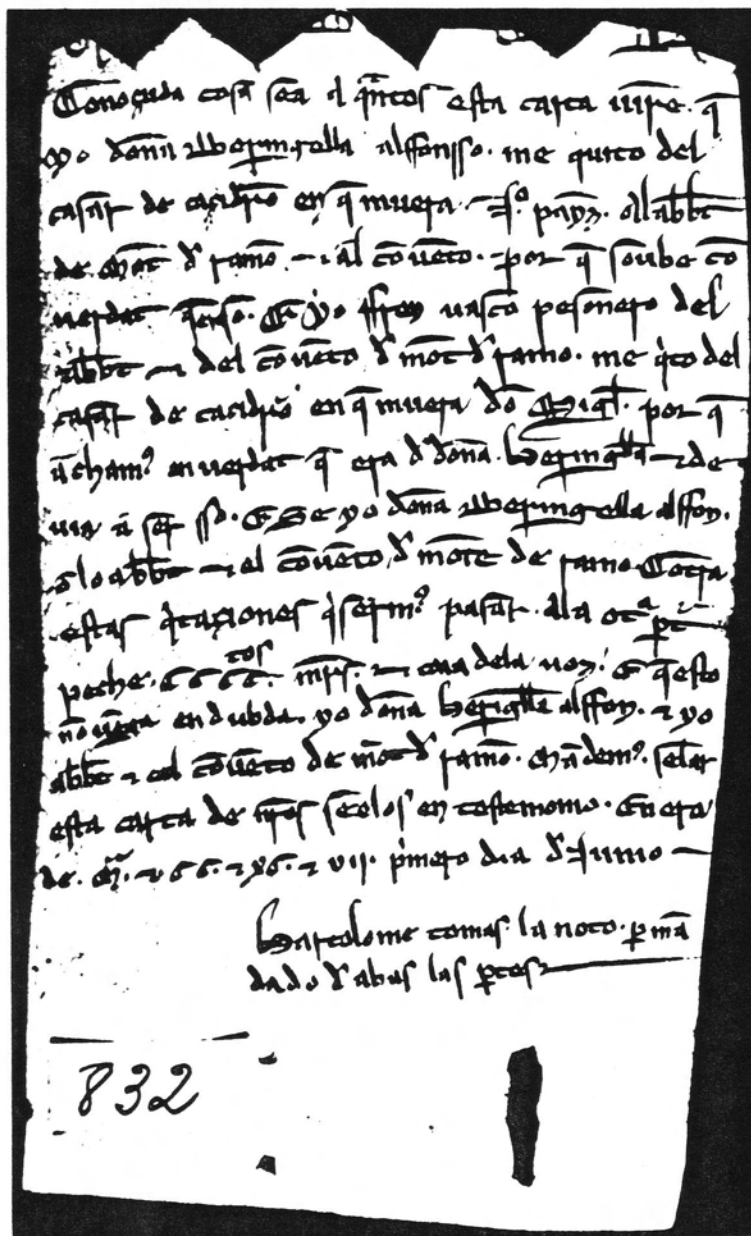 Conoçuda cosa sea a q̃ntos esta carta uirẽ. q̃
yo doña Beringella alffonsso. me quito del
casar de en q̃ muera
de Mõt d' ramo. ⁊ al cõuẽto. por q̃ soube cõ
uerdat Et yo ffrey uasco pesonero del
abbt ⁊ del cõuẽto d' mõt d' ramo. me q̇to del
casar de en q̃ muera dõ Migl̃. por q̃
achamꝰ en uerdat q̃ era d' doña. Beringll̃a ⁊ de
uia a ser sso. E Se yo doña Beringella alffon.
o lo abbt ⁊ el cõuẽto d' mõte de ramo. Cõtra
estas q̇taçiones q̇sermꝰ pasar. a la otª pt̃
peche. cccc.tos mr̃s. ⁊ de la uoz. E q̃ esto
nõ uẽga en dubda. yo doña Beringll̃a alffon. ⁊ yo
abbt ⁊ el cõuẽto de mõt d' ramo. Mãdemꝰ. seelar
esta carta de nr̃os seelos en testemonio. En era
de. M̃. ⁊ cc. ⁊ ⁊ vii. p̃mero dia d' Junio
Bartolome tomas. la noto. per mã
dado d' abas las ptes
832